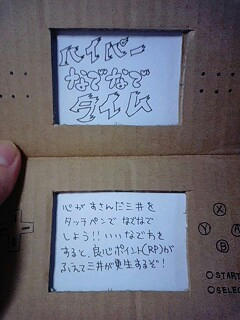 ハイパー
なでなで
タイム
心がすさんだ三井を
タッチペンでなでなで
しよう!!いいなでかたを
すると、良心ポイント(RP)が
ふえて三井が更生するぞ!
X
Y
B
START
SELEC